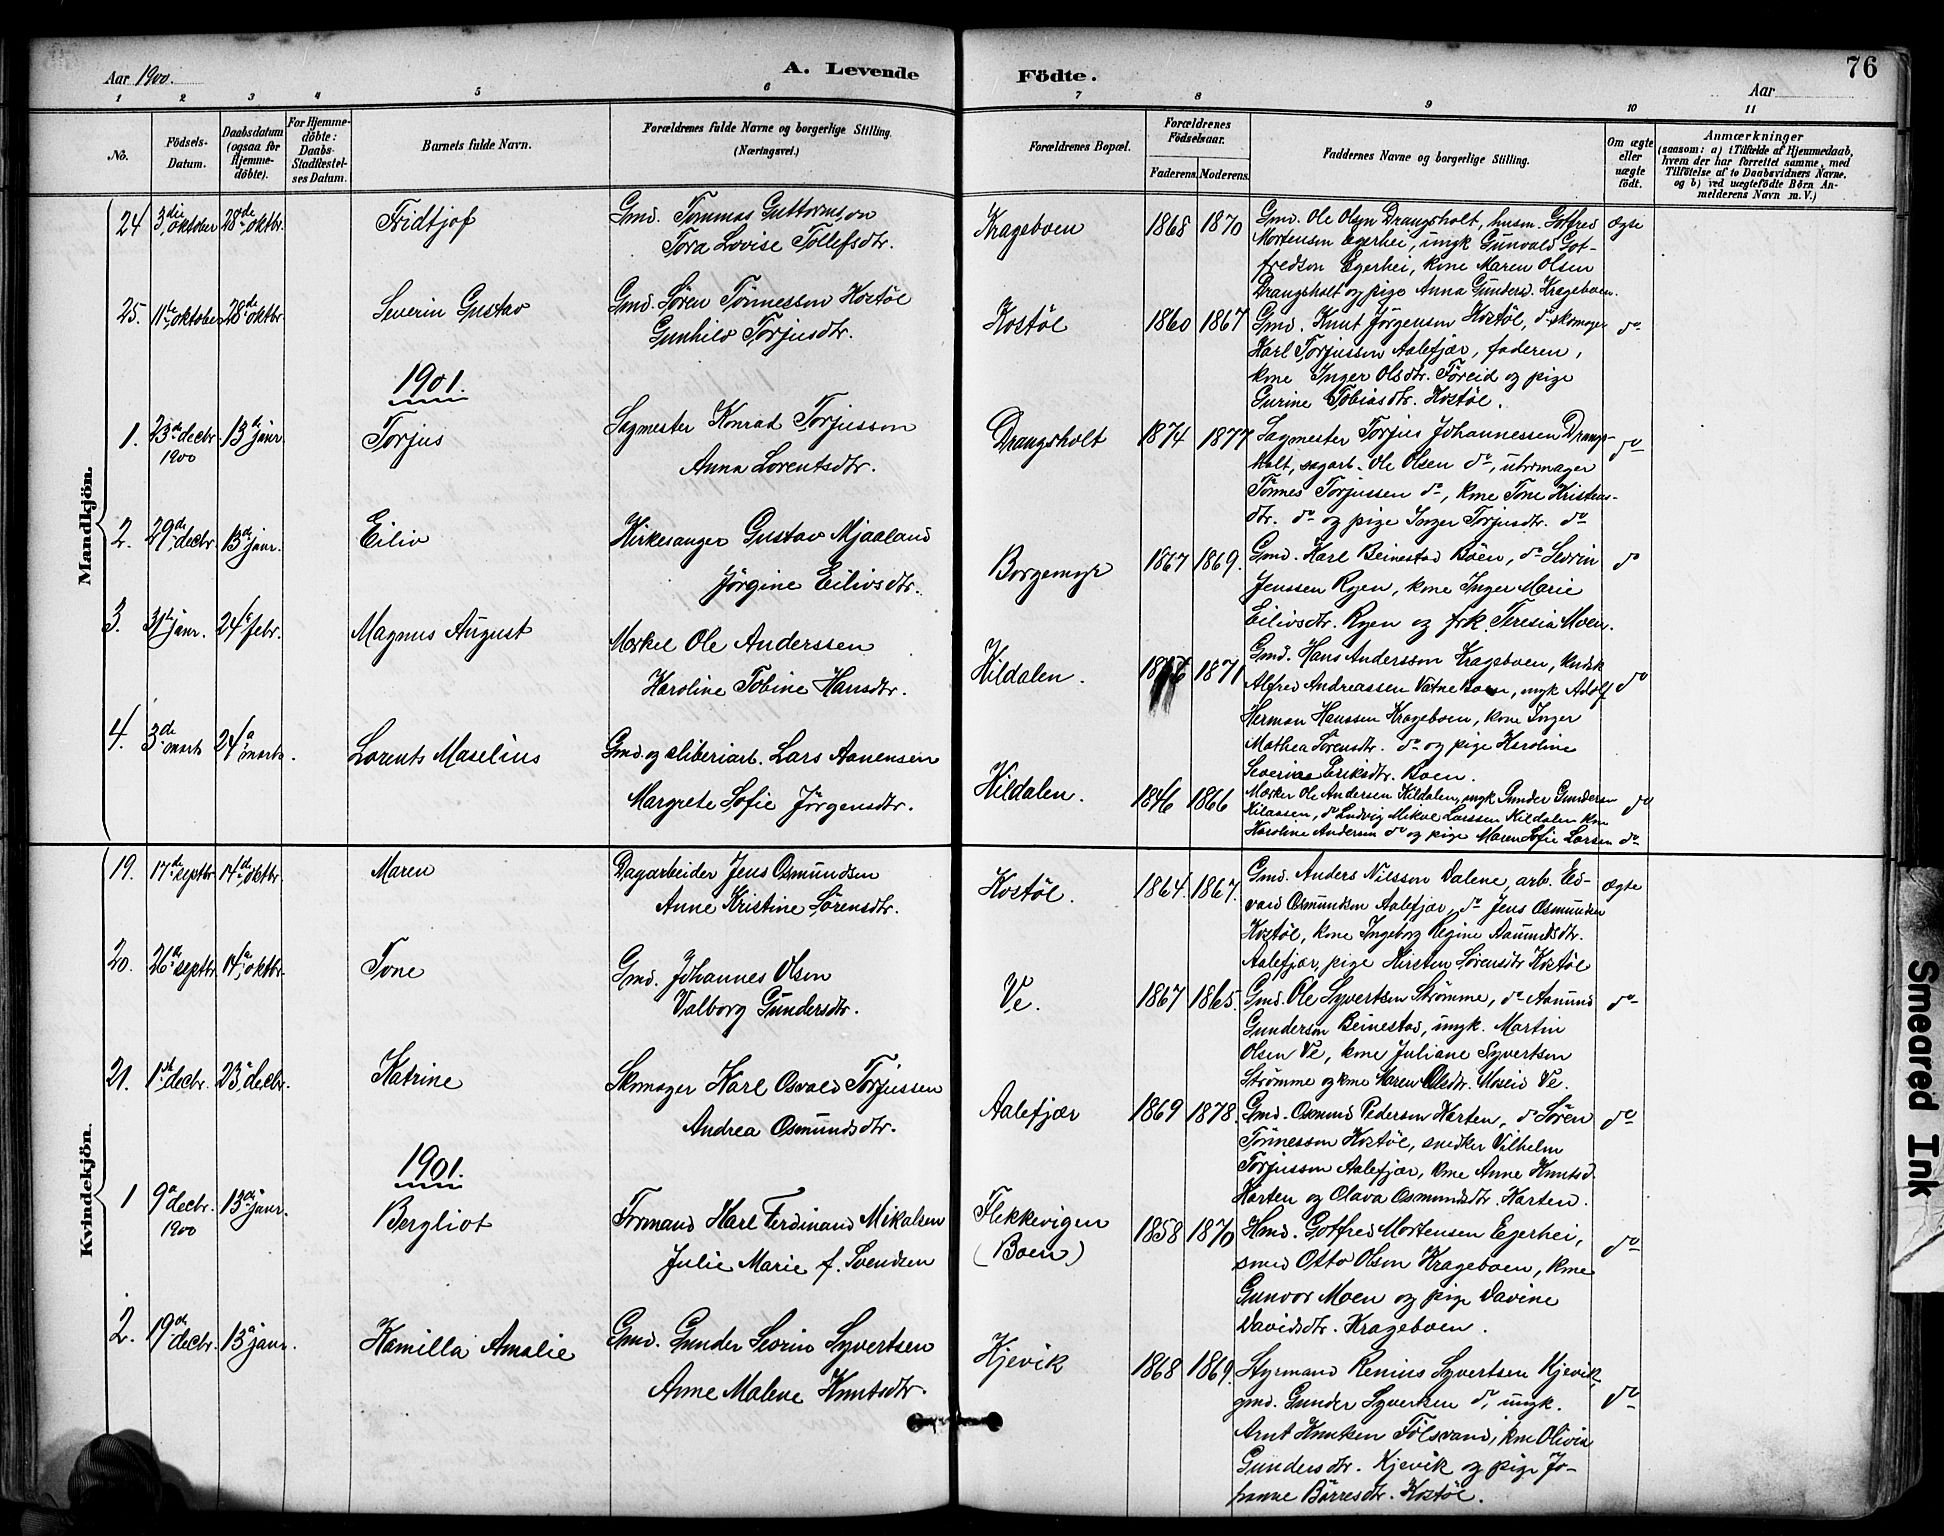 Aar 1900.
A. Levende
Födte.
76
Aar
1 2 3 4 5 6 7 8 9 10 11
No.
Födsels-Datum.
Daabsdatum (ogsaa for Hjemme-döbte).
For Hjemme-döbte: Daabs-Stadfæstel-ses Datum.
Barnets fulde Navn.
Forældrenes fulde Navne og borgerlige Stilling.
(Næringsvei.)
Forældrenes Bopæl.
Forældrenes Födselsaar.
Faderens. Moderens.
Faddernes Navne og borgerlige Stilling.
Om ægte eller uægte födt.
Anmærkninger
(saasom: a) i Tilfælde af Hjemmedaab, hvem der har forrettet samme, med Tilföielse af to Daabsvidners Navne. og b) ved uægtefödte Börn An-melderens Navn m. V.)
Mandkjön.
24 3die oktober 28de oktbr. Fridtjof
Gmd. Tommas Guttormson
Tora Lovise Tollefsdtr.
Krageboen 1868 1870
Gmd. Ole Olsen Drangsholt, husm. Gotfred
Mortensen Egerhei, ungk Gunvald Got-
fredson Egerhei, kone Maren Olsen
Drangsholt og pige Anna Gundersd. Krageboen.
Ægte
25. 11te oktober 28de oktbr. Severin Gustav
Gmd. Sören Tönnesson Kostöl
Gunhild Torjusdtr.
Kostöl 1860 1867
Gmd. Knut Jörgensen Kostöl, do skomager
Karl Torjussen Aalefjær, faderen,
kone Inger Olsdtr. Föreid og pige
Gurine Tobiasdtr. Kostöl.
do
1901.
1. 23de decbr. 1900 13de janr. Torjus
Sagmester Konrad Torjusson
Anna Lorentsdtr.
Drangsholt 1874 1877
Sagmester Torjus Johannessen Drangs-
holt, sagarb. Ole Olsen do, uhrmager
Tönnes Torjussen do, kone Tone Kristens-
dtr. do og pige Inger Torjusdtr. do
do
2. 29de decbr. 13de janr. Eiliv
Kirkesanger Gustav Mjaaland
Jörgine Eilivsdtr.
Borgemyr 1867 1869.
Gmd. Karl Beinestad Böen, do Sevrin
Jenssen Ryen, kone Inger Marie
Eilivsdtr. Ryen og frk. Teresia Moen.
do
3. 3die janr. 24de febr. Magnus August
Mærker Ole Anderssen
Karoline Tobine Hansdtr.
Kildalen. 1871
Gmd. Hans Andersson Krageboen,
Alfred Andreassen Vatne Boen, ungk Adolf
Herman Hanssen Krageboen, kone Inger
Mathea Sörensdtr. do og pige Karoline
Severine Eriksdtr. Boen.
do
4. 3de marts 24de marts. Lorents Maselius
Gmd. og sliberiarb. Lars Aanensen
Margrete Sofie Jörgensdtr.
Kildalen. 1846 1866
Mærker Ole Andersen Kildalen, ungk Gunder Gundersen
Kilaasen, do Ludvig Mikal Larssen Kildalen kone
Karoline Andersen do og pige Maren Sofie Larsen do
do
Kvindekjön.
19. 17de septbr. 14de oktbr. Maren
Dagarbeider Jens Osmundsen
Anne Kristine Sörensdtr.
Kostöl. 1864. 1867.
Gmd. Anders Nilsson Dalene, arb. Ed-
vard Osmundsen Aalefjær, do Jens Osmundsen
Kostöl, kone Ingeborg Regine Aamundsdtr.
Aalefjær, pige Kirsten Sörensdtr Kostöl
Ægte
20. 26de septbr. 14de oktbr. Tone
Gmd. Johannes Olsen
Valborg Gundersdtr.
Ve. 1867 1865.
Gmd. Ole Syvertsen Strömme, do Aamund
Gunderson Beinestad, ungk. Martin
Olsen Ve, kone Juliane Syvertsen
Strömme og kone Maren Olsdtr. Moseid Ve.
do
21. 1ste decbr. 23de decbr. Katrine
Skomager Karl Osvald Torjussen
Andrea Osmundsdtr.
Aalefjær 1869 1878.
Gmd. Osmund Pederson Harten, do Sören
Tönnesson Kostöl, snedker Vilhelm
Torjusson Aalefjær, kone Anne Knutsd.
Harten og Olava Osmundsdtr. Harten.
do
1901.
1 9de decbr. 1900 13de janr. Bergliot
Formand Karl Ferdinand Mikalsen
Julie Marie f. Svendsen
Flekkevigen
(Boen)
1858 1870
Hmd. Gotfred Mortensen Egerhei,
smed Otto Olson Krageboen, kone
Gunvor Moen og pige Davine
Davidsdtr. Krageboen.
do
2. 19de decbr. 13de janr. Kamilla Amalie
Gmd. Gunder Sevrin Syvertsen
Anne Malene Knutsdtr.
Kjevik 1868 1869.
Styrmand Renius Syvertsen Kjevik,
gmd. Gunder Syvertsen do, ungk.
Arnt Knutsen Tölsvand, kone Olivia
Gundersdtr. Kjevik og pige Jo-
hanne Börresdtr. Kostöl.
do
Smeared Ink